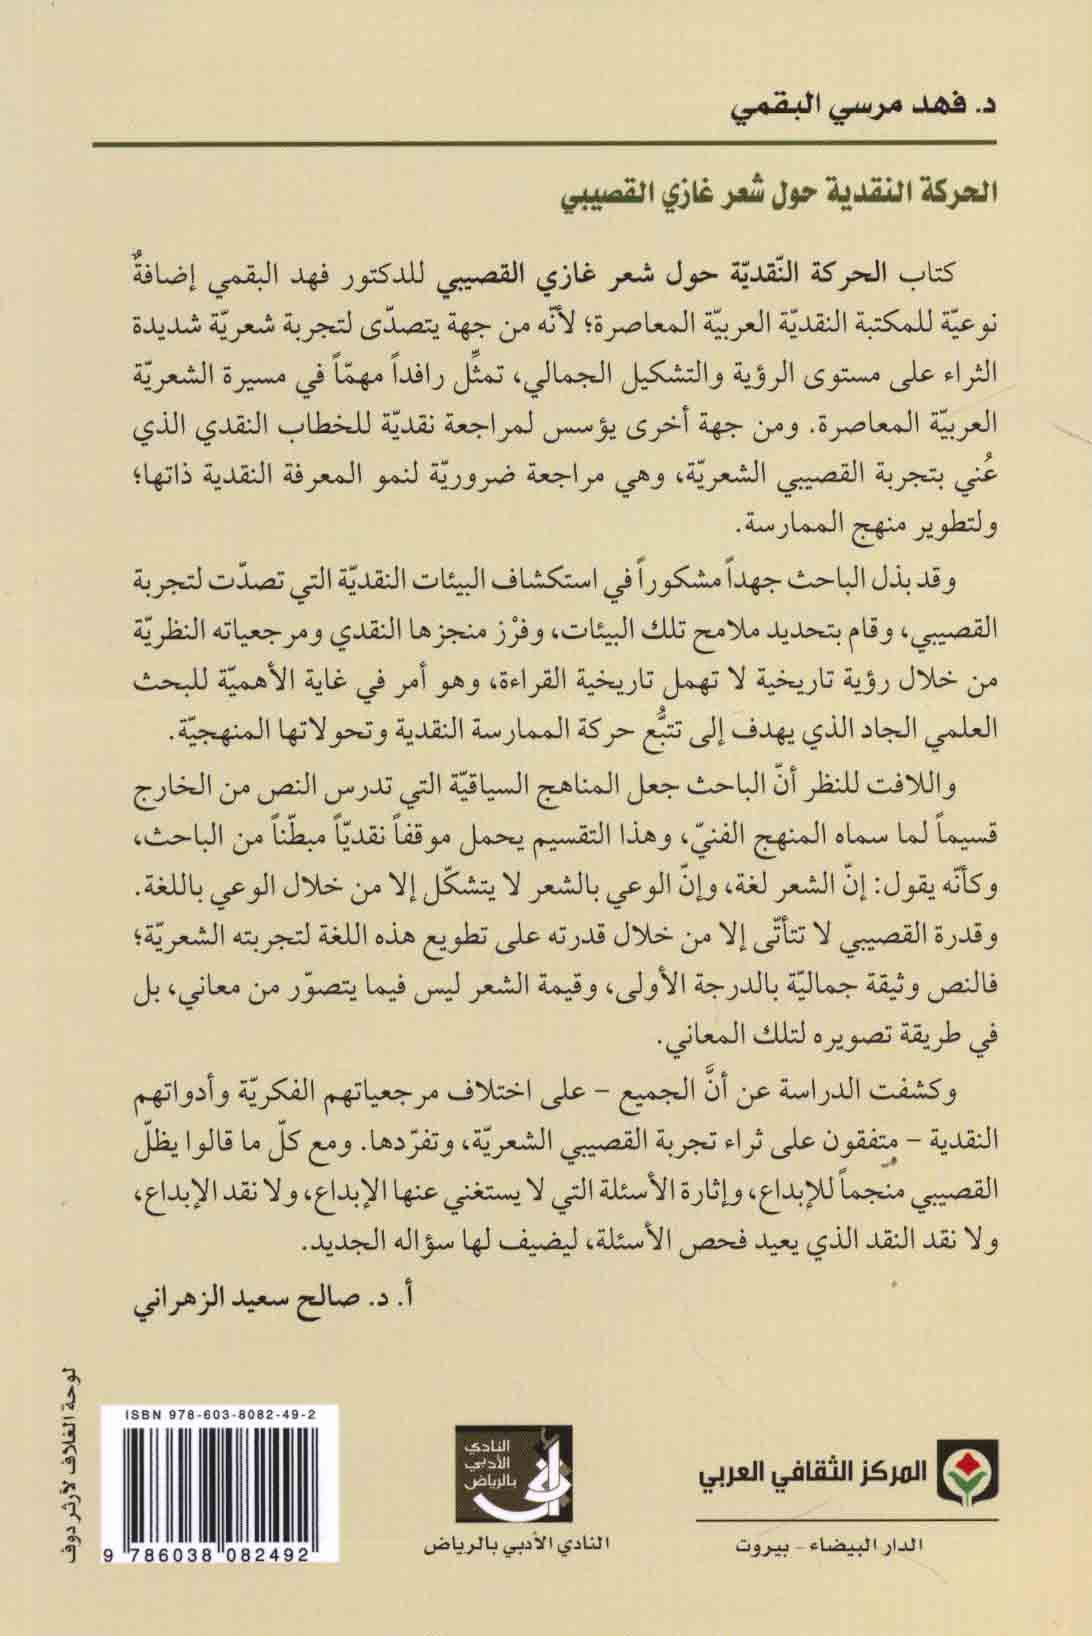 د. فهد مرسي البقمي
الحركة النقدية حول شعر غازي القصيبي
كتاب الحركة النّقديّة حول شعر غازي القصيبي للدكتور فهد البقمي إضافةٌ
نوعيّة للمكتبة النقديّة العربيّة المعاصرة؛ لأنّه من جهة يتصدّى لتجربة شعريّة شديدة
الثراء على مستوى الرؤية والتشكيل الجمالي، تمثِّل رافداً مهمّاً في مسيرة الشعريّة
العربيّة المعاصرة. ومن جهة أخرى يؤسس لمراجعة نقديّة للخطاب النقدي الذي
عُني بتجربة القصيبي الشعريّة، وهي مراجعة ضروريّة لنمو المعرفة النقدية ذاتها؛
ولتطوير منهج الممارسة.
وقد بذل الباحث جهداً مشكوراً في استكشاف البيئات النقديّة التي تصدّت لتجربة
القصيبي، وقام بتحديد ملامح تلك البيئات، وفرْز منجزها النقدي ومرجعياته النظريّة
من خلال رؤية تاريخية لا تهمل تاريخية القراءة، وهو أمر في غاية الأهميّة للبحث
العلمي الجاد الذي يهدف إلى تتبُّع حركة الممارسة النقدية وتحولاتها المنهجيّة.
واللافت للنظر أنّ الباحث جعل المناهج السياقيّة التي تدرس النص من الخارج
قسيماً لما سماه المنهج الفنيّ، وهذا التقسيم يحمل موقفاً نقديّاً مبطّناً من الباحث،
وكأنّه يقول: إنّ الشعر لغة، وإنّ الوعي بالشعر لا يتشكّل إلا من خلال الوعي باللغة.
وقدرة القصيبي لا تتأتّى إلا من خلال قدرته على تطويع هذه اللغة لتجربته الشعريّة؛
فالنص وثيقة جماليّة بالدرجة الأولى، وقيمة الشعر ليس فيما يتصوّر من معاني، بل
في طريقة تصويره لتلك المعاني.
وكشفت الدراسة عن أنَّ الجميع - على اختلاف مرجعياتهم الفكريّة وأدواتهم
النقدية - متفقون على ثراء تجربة القصيبي الشعريّة، وتفرّدها. ومع كلّ ما قالوا يظلّ
القصيبي منجماً للإبداع، وإثارة الأسئلة التي لا يستغني عنها الإبداع، ولا نقد الإبداع،
ولا نقد النقد الذي يعيد فحص الأسئلة، ليضيف لها سؤاله الجديد.
أ. د. صالح سعيد الزهراني
لوحة الغلاف لآرثر دوف
ISBN 978-603-8082-49-2
9 786038 082492
النادي
الأدبي
بالرياض
النادي الأدبي بالرياض
المركز الثقافي العربي
الدار البيضاء - بيروت